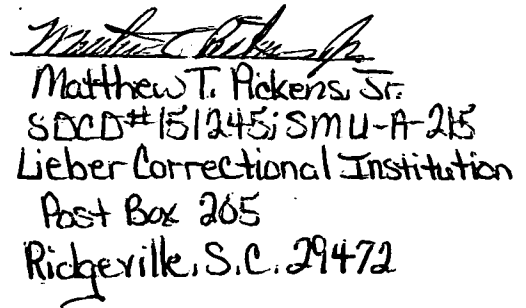 Matthew T. Pickens, Jr.
SDCD#151245; SMU-A-215
Lieber Correctional Institution
Post Box 205
Ridgeville, S.C. 29472